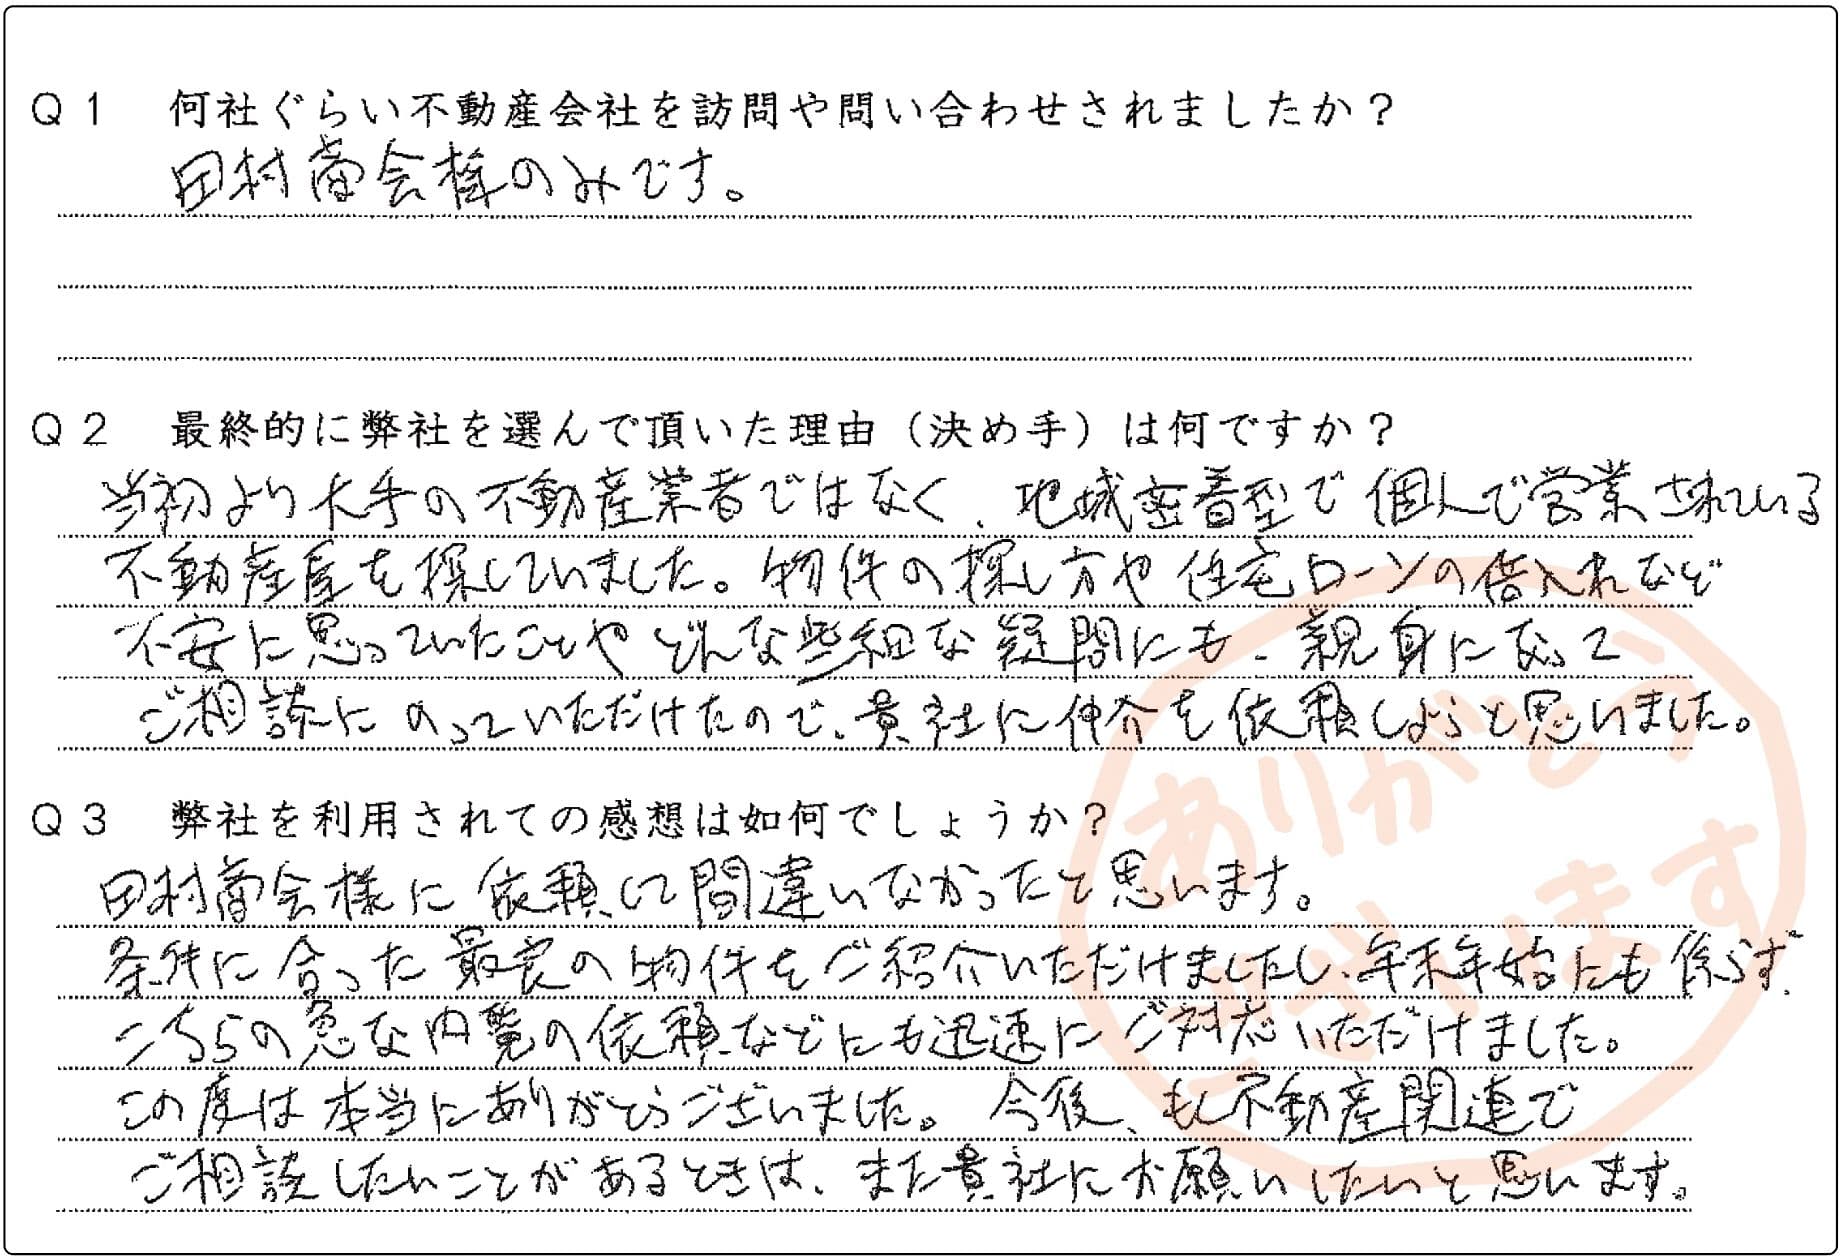 Q1 何社ぐらい不動産会社を訪問や問い合わせされましたか?
田村商会様のみです。
Q2 最終的に弊社を選んで頂いた理由(決め手)は何ですか?
当初より大手の不動産業者ではなく、地域密着型で個人で営業されている
不動産屋を探していました。物件の探し方や住宅ローンの借入れなど
不安に思っていたことやどんな些細な疑問にも、親身になって
ご相談にのっていただけたので、貴社に仲介を依頼しようと思いました。
Q3 弊社を利用されての感想は如何でしょうか?
田村商会様に依頼して間違いなかったと思います。
条件に合った最良の物件をご紹介いただけましたし、年末年始にも係らず、
こちらの急な内覧の依頼などにも迅速にご対応いただけました。
この度は本当にありがとうございました。今後、もし不動産関連で
ご相談したいことがあるときは、また貴社にお願いしたいと思います。
ありがとう
ございます